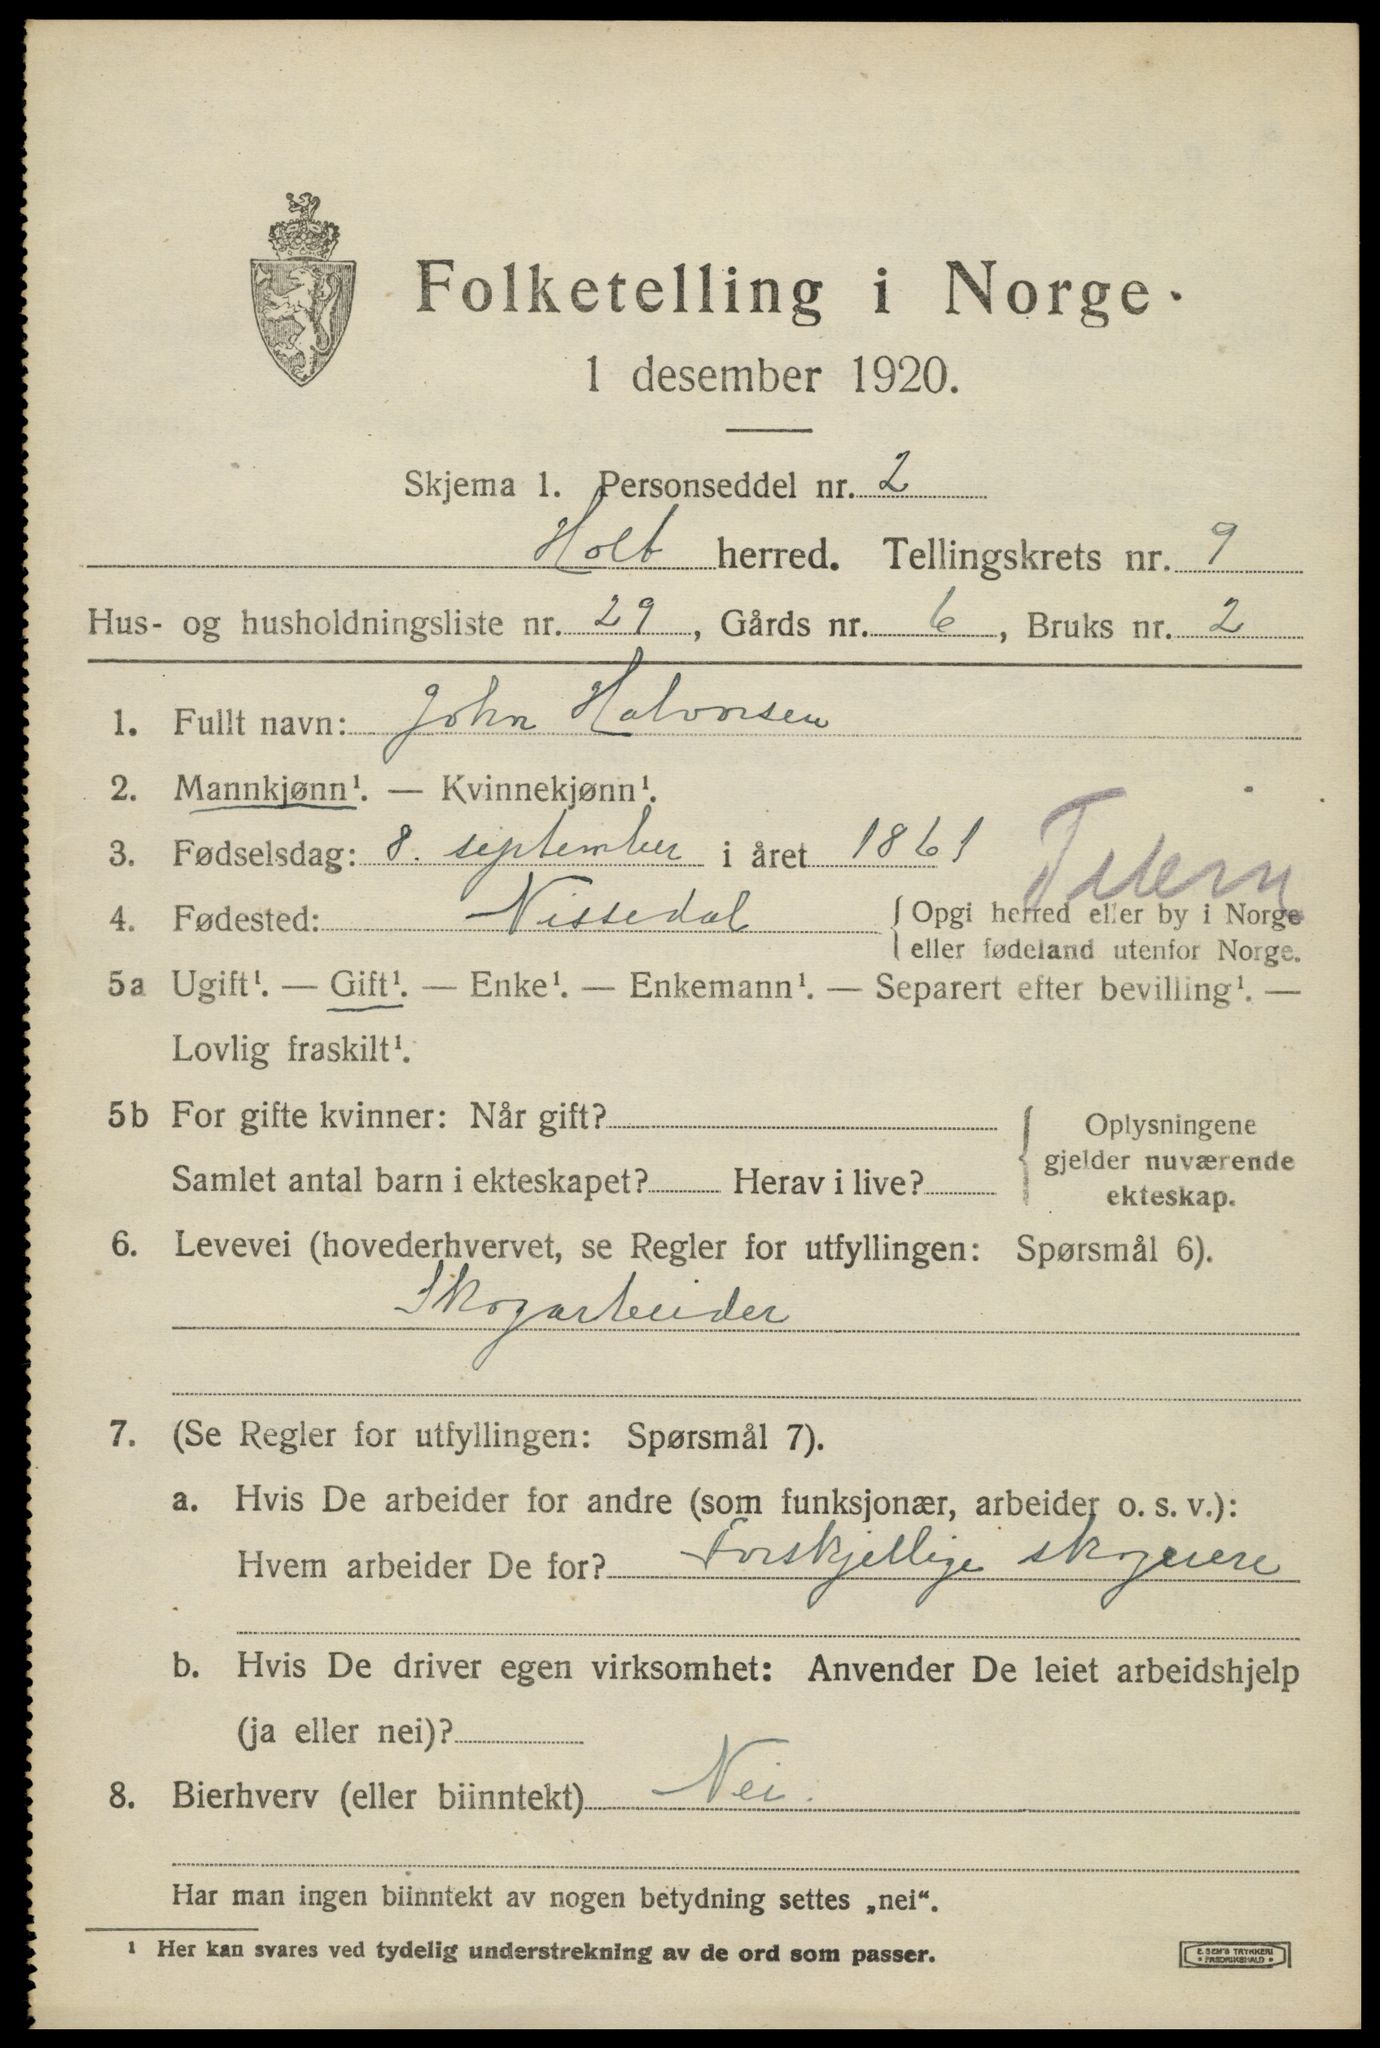 Folketelling i Norge
1 desember 1920.
Skjema 1. Personseddel nr. 2
Holt herred. Tellingskrets nr. 9
Hus- og husholdningsliste nr. 29, Gårds nr. 6, Bruks nr. 2
1. Fullt navn: John Halvorsen
2. Mannkjønn¹. — Kvinnekjønn¹.
3. Fødselsdag: 8. september i året 1861
4. Fødested: Nissedal { Opgi herred eller by i Norge
eller fødeland utenfor Norge.
5a Ugift¹. — Gift¹. — Enke¹. — Enkemann¹. — Separert efter bevilling¹. —
Lovlig fraskilt¹.
5b For gifte kvinner: Når gift?
Samlet antal barn i ekteskapet? Herav i live?
{ Oplysningene
gjelder nuværende
ekteskap.
6. Levevei (hovederhvervet, se Regler for utfyllingen: Spørsmål 6).
Skogarbeider
7. (Se Regler for utfyllingen: Spørsmål 7).
a. Hvis De arbeider for andre (som funksjonær, arbeider o. s. v.):
Hvem arbeider De for? Forskjellige skogeiere
b. Hvis De driver egen virksomhet: Anvender De leiet arbeidshjelp
(ja eller nei)?
8. Bierhverv (eller biinntekt) Nei.
Har man ingen biinntekt av nogen betydning settes „nei“.
¹ Her kan svares ved tydelig understrekning av de ord som passer.
E. SEM'S TRYKKERI
• FREDRIKSHALD •